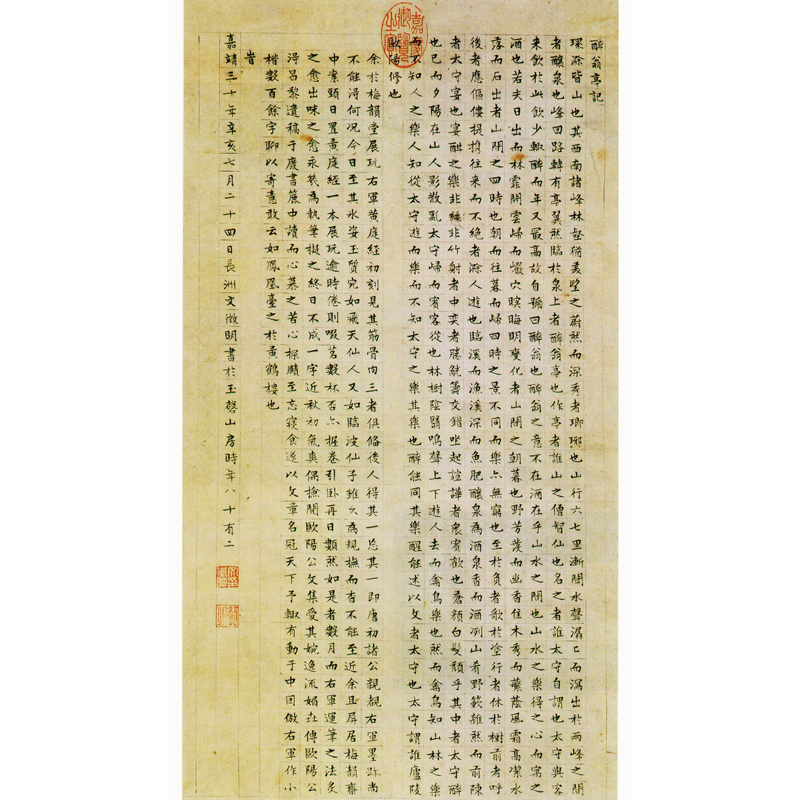 醉翁亭記
環滁皆山也其西南諸峰林壑猶美望之蔚然而深秀者瑯琊也山行六七里漸聞水聲潺〻而瀉出於兩峰之間
者釀泉也峰回路轉有亭翼然臨於泉上者醉翁亭也作亭者誰山之僧智仙也名之者誰太守自謂也太守與客
來飲於此飲少輒醉而年又最高故自號曰醉翁也醉翁之意不在酒在乎山水之間也山水之樂得之心而寓之
酒也若夫日出而林霏開雲歸而巖穴暝晦明變化者山間之朝暮也野芳發而幽香佳木秀而繁蔭風霜高潔水
落而石出者山間之四時也朝而往暮而歸四時之景不同而樂亦無窮也至於負者歌於塗行者休於樹前者呼
後者應傴僂提攜往來而不絕者滁人遊也臨溪而漁溪深而魚肥釀泉為酒泉香而酒冽山肴野蔌雜然而前陳
者太守宴也宴酣之樂非絲非竹射者中奕者勝觥籌交錯坐起諠譁者衆賓歡也蒼顏白髮頹乎其中者太守醉
也已而夕陽在山人影散亂太守歸而賓客從也林樹陰翳鳴聲上下遊人去而禽鳥樂也然而禽鳥知山林之樂
而不知人之樂人知從太守遊而樂而不知太守之樂其樂也醉能同其樂醒能述以文者太守也太守謂誰廬陵
歐陽修也
嘉慶御覽之寶
余於梅韻堂展玩右軍黃庭經初刻見其筋骨肉三者俱備後人得其一忘其一即唐初諸公親覩右軍墨跡尚
不能得何況今日至其水姿玉質宛如飛天仙人又如臨波仙子雖久為規撫而杳不能至近余且屏居梅韻齋
中案頭日置黃庭經一本展玩逾時倦則啜茗數杯否亦握卷引卧再日顙然如是者數月而右軍運筆之法炙
之愈出味之愈永幾為執筆擬之終日不成一字近秋初氣爽偶撿閱歐陽公文集愛其婉逸流媚並傳歐陽公
得昌黎遺稿于廢書簏中讀而心慕之苦心探賾至忘寢食遂以文章名冠天下予輒有動于中因倣右軍作小
楷數百餘字聊以寄意敢云如鳳凰臺之於黃鶴樓也
旹
嘉靖三十年辛亥七月二十四日長洲文徵明書於玉磬山房時年八十有二